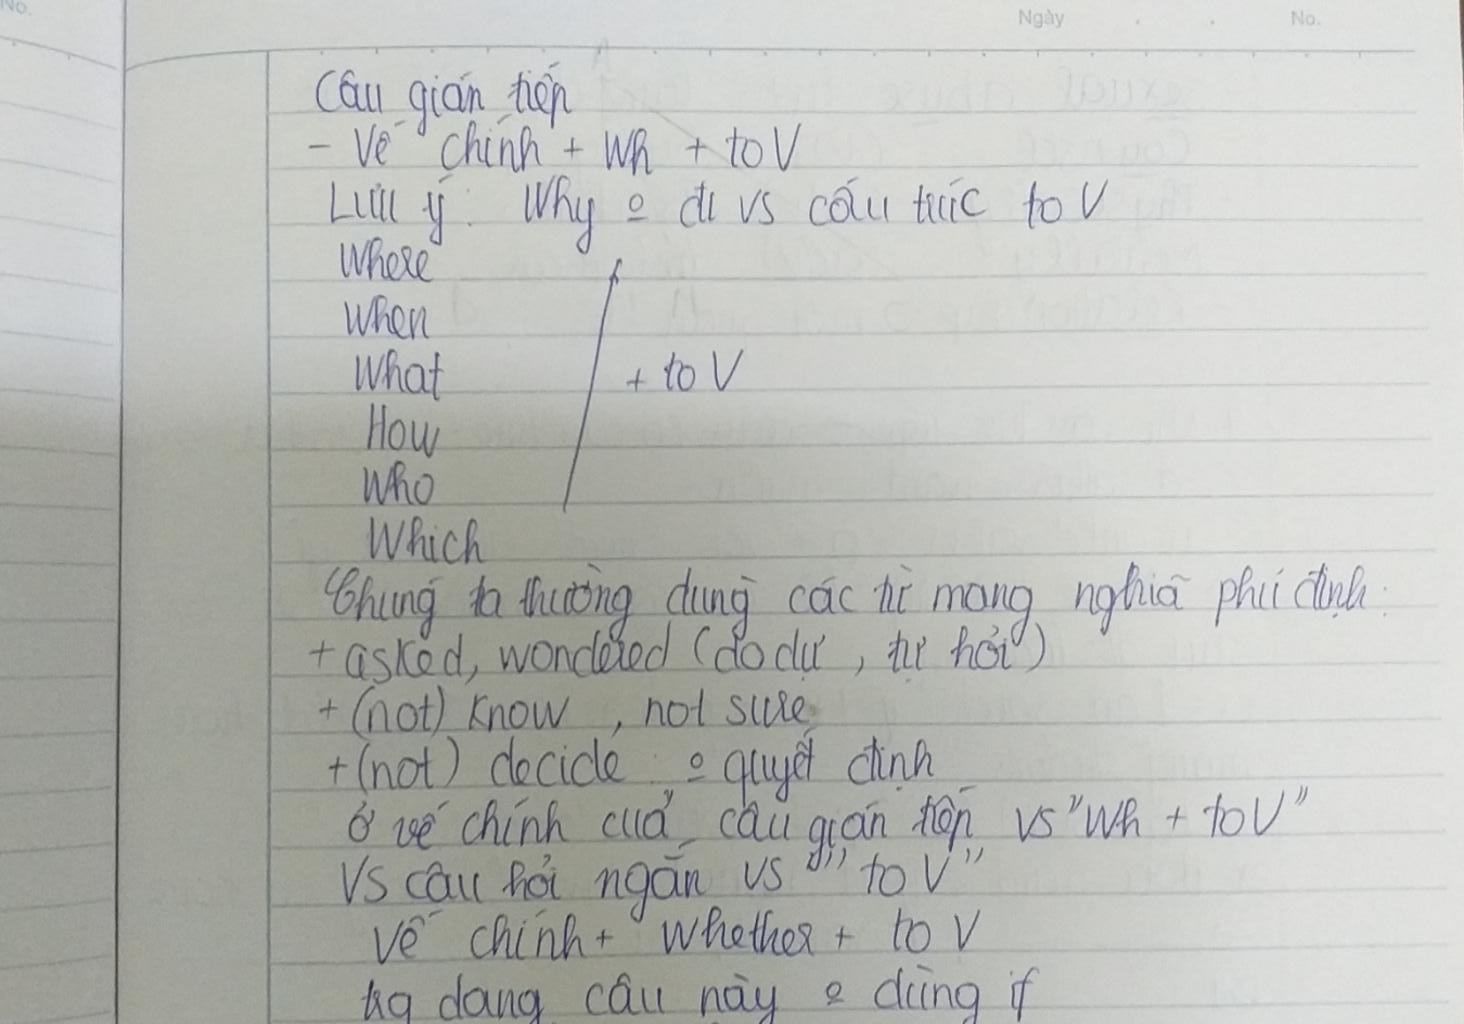 No.
Ngày
No.
Câu gián tiếp
- Vế chính + Wh + to V
Lưu ý: Why o đi vs cấu trúc to V
Where
When
What + to V
How
Who
Which
Chúng ta thường dùng các từ mang nghĩa phủ định:
+ asked, wondered (do dự, tự hỏi)
+ (not) know, not sure
+ (not) decide : o quyết định
ở vế chính của câu gián tiếp vs "Wh + to V"
Vs câu hỏi ngắn vs "to V"
Vế chính + whether + to V
trg dạng câu này o dùng if